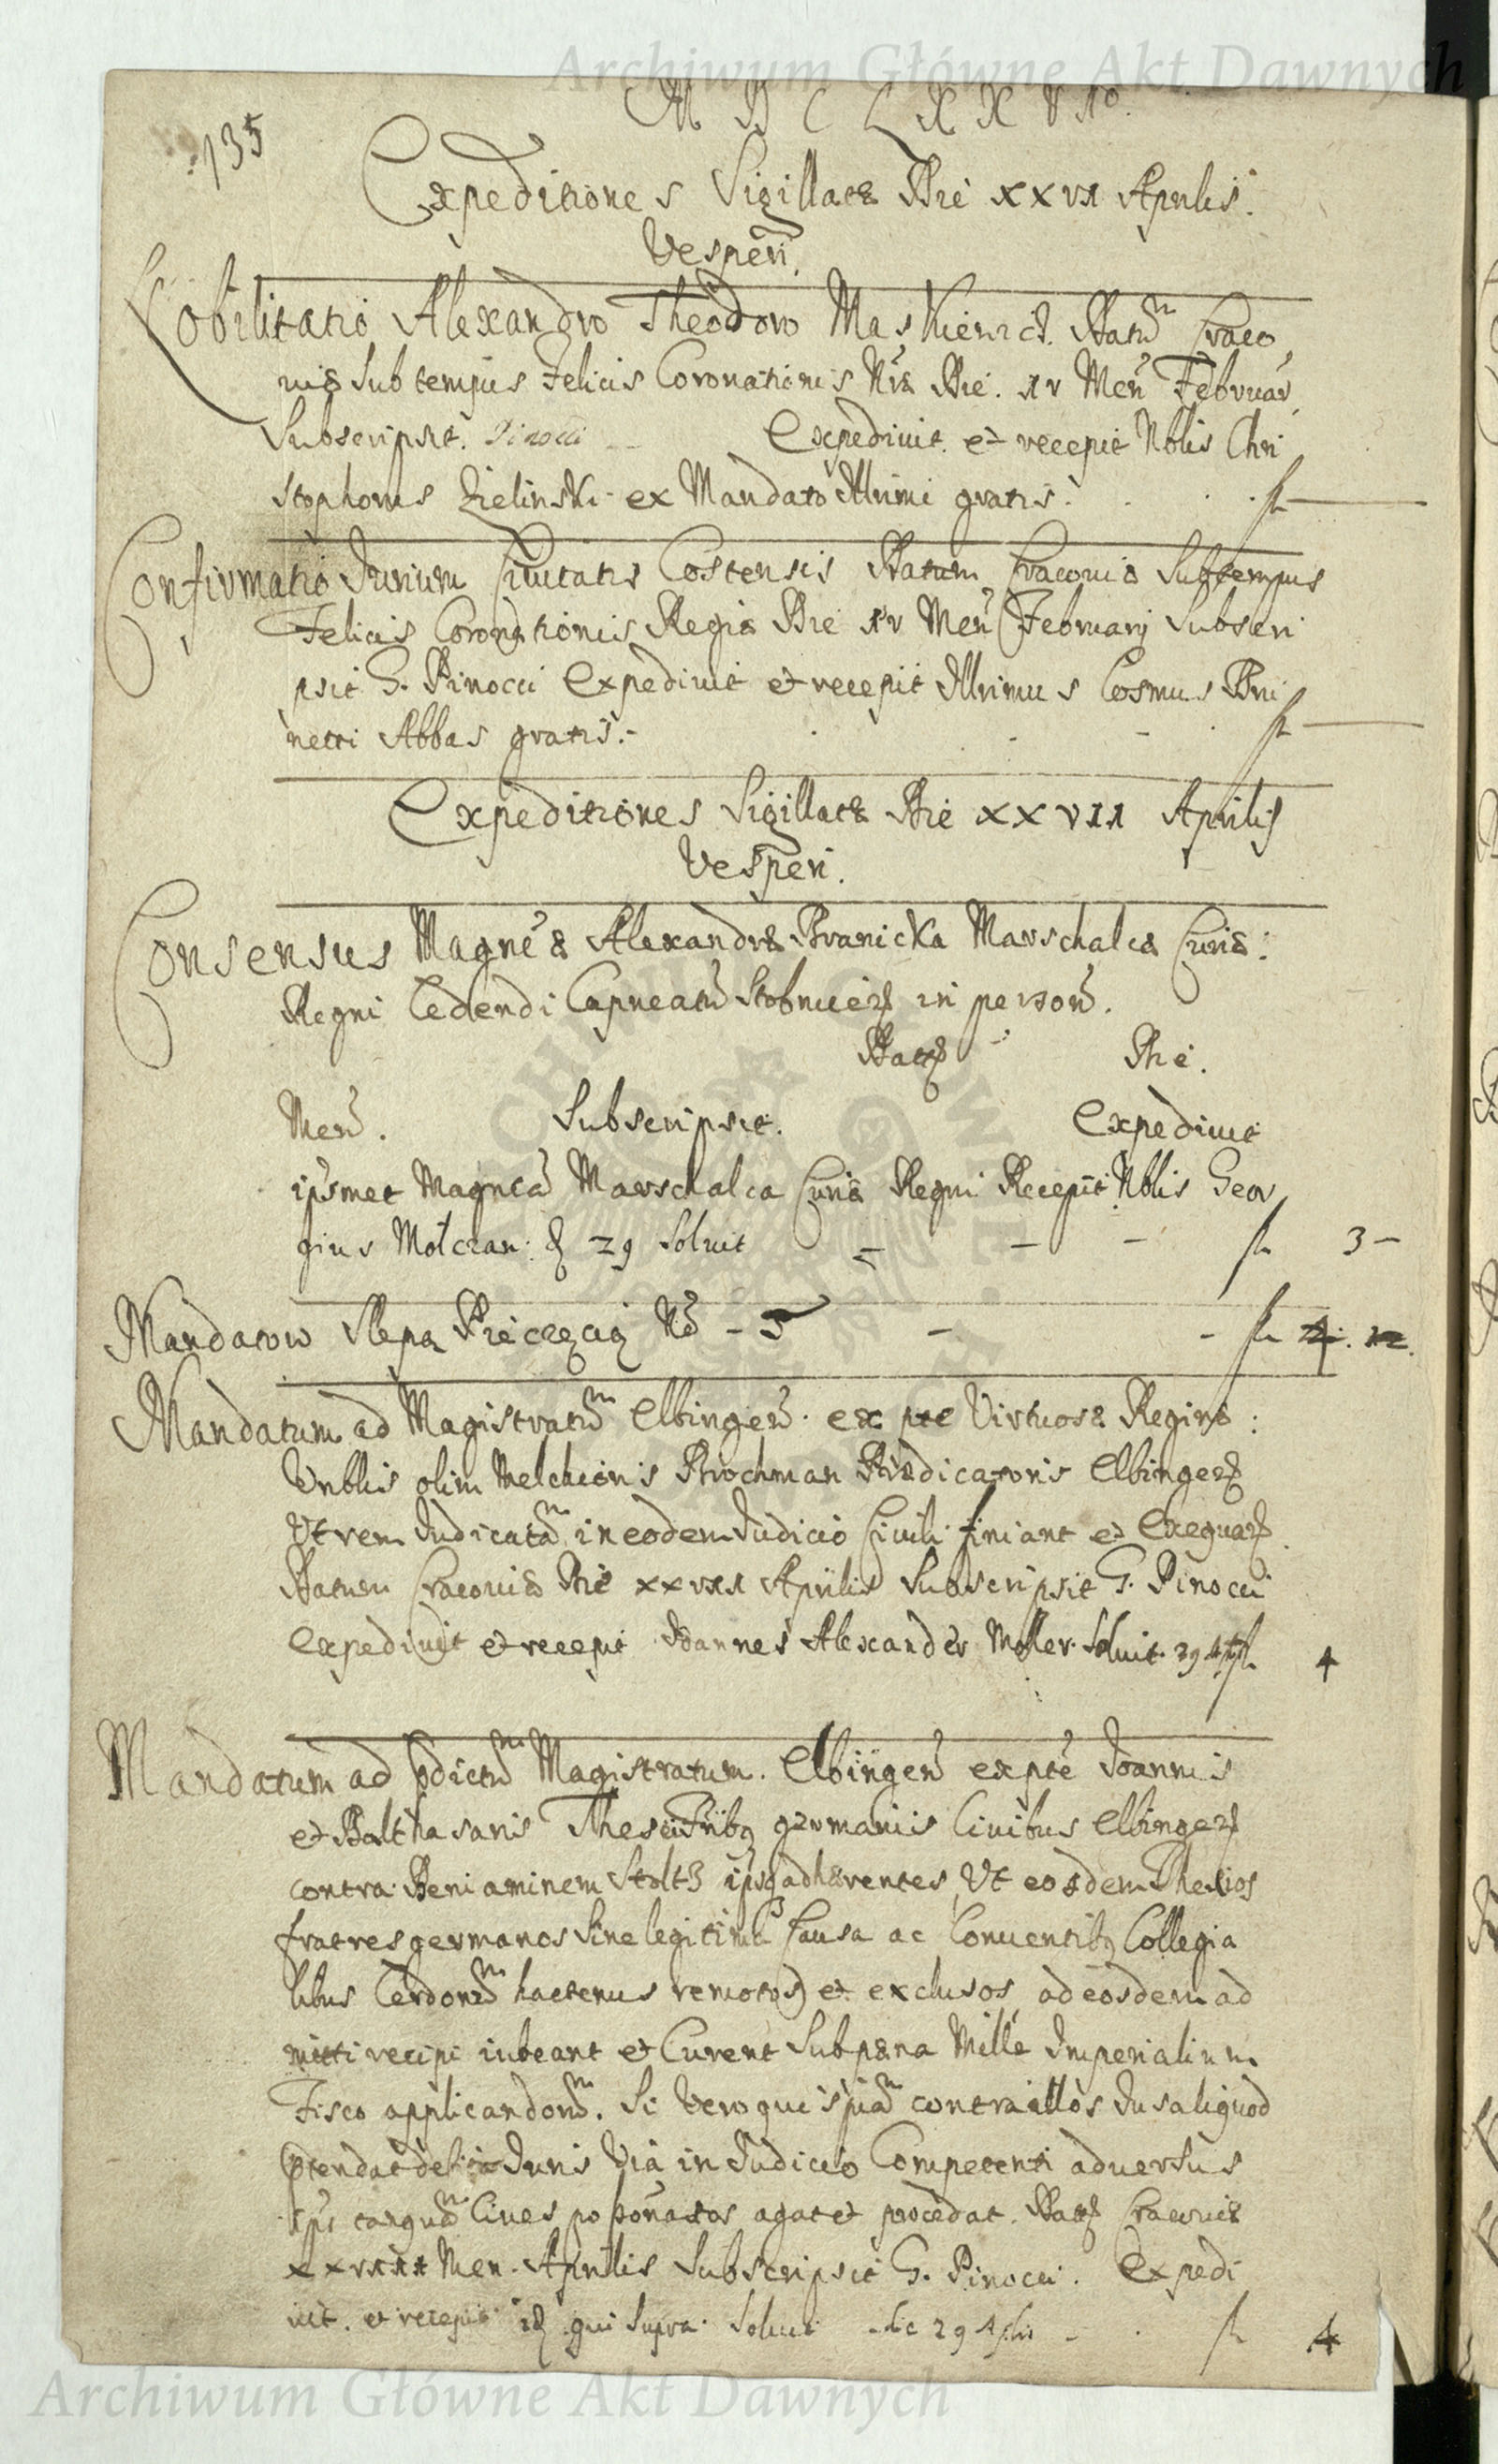 Archiwum Główne Akt Dawnych
M D C L X X V I°
135
Expeditiones Sigillatæ Die XXVI Aprilis.
Vesperi.
Nobilitatio Alexandro Theodoro Maskiewicz. Datũ Craco
uiæ Sub tempus Felicis Coronationis Nræ Die. IV Men Februar,
Subscripsit. Pinocci Expediuit. et recepit Nblis Chri
stophorus Zielinski ex Mandato Illrimi gratis. fl —
Confirmatio Jurium Ciuitatis Costensis Datum Cracouiæ Sub tempus
Felicis Coronationis Regiæ Die IV Men Februarij Subscri
psit G. Pinocci Expediuit et recepit Illrimus Cosmus Bru
netti Abbas gratis. - fl —
Expeditiones Sigillatæ Die XXVII Aprilis
Vesperi.
Consensus Magneæ Alexandræ Branicka Marschalcæ Curiæ:
Regni Cedendi Capneatũ Stobnicen in person.
Datt Die.
Men. Subscripsit. Expediuit
ipsmet Magnca Marschalca Curiæ Regni Recepit Nblis Geor
gius Molczan 29 Soluit - - - fl 3 -
Mandatow Slepą Pieczęcią No - 5 - - fl 4. 12.
Mandatum ad Magistratũ Elbingen. ex pte Virtuosæ Reginæ:
Vnblis olim Melchioris Brochman Prædicatoris Elbingen
Vt rem Judicatã in eodem Judicio Ciuili finiant et Exequar.
Datum Cracouiæ Die XXVII Aprilis Subscripsit G. Pinocci
Expediuit et recepit Joannes Alexander Moller Soluit. 29 fl 4
Mandatum ad pdictũ Magistratum. Elbingen ex pte Joannis
et Balthasaris germanis Ciuibus Elbingen
contra Beniaminem Stoltz ipsq adhærentes, Vt eosdem
fratres germanos Sine legitima Causa ac Conuentibq Collegia
libus Cerdonũ hactenus remotos et exclusos ad eosdem ad
mitti recipi iubeant et Curent Sub pæna Mille Imperialium
Fisco applicandorũ. Si Vero quispiã contra illos Jus aliquod
ptendat Juris Via in Judicio Competenti aduersus
tanquã Ciues agat et procedat. Datt Cracouiæ
XXVIII Men. Aprilis Subscripsit G. Pinocci. Expedi
uit. et recepit qui Supra. Soluit 29 fl 4
Archiwum Główne Akt Dawnych